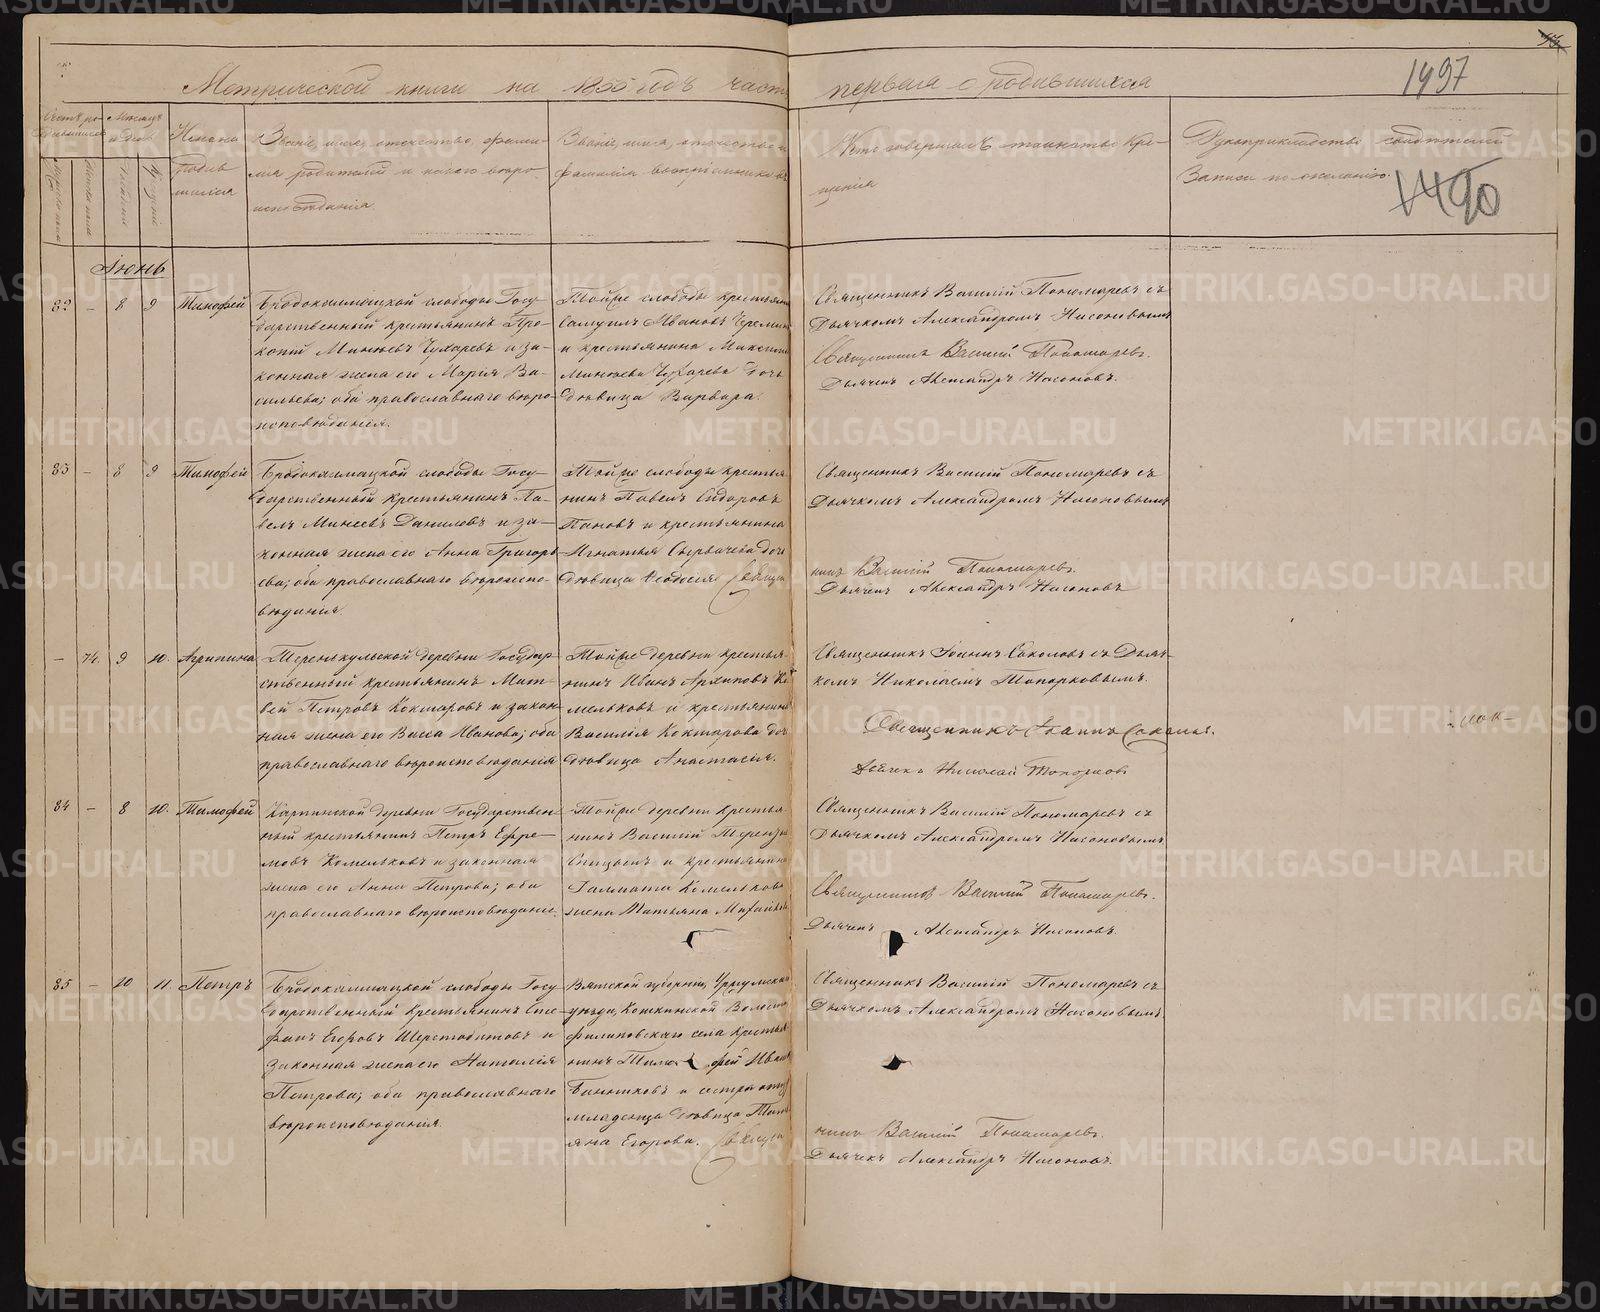 Метрической книги на 1855 годъ часть первая о родившихся
1497
Имена родившихся
Званіе, имя, отечество, фамилія родителей и какого вѣроисповѣданія.
Званіе, имя, отечество и фамилія воспріемниковъ
Кто совершалъ таинство крещенія
Рукоприкладство свидѣтелей записи по желанію.
1490
Іюнь
82 — 8 9 Тимофей
Бродокалмацкой слободы Госу-
дарственный крестьянинъ Про-
копій Минѣевъ Чухаревъ и за-
конная жена его Марія Ва-
сильева; оба православнаго вѣро-
исповѣданія.
Тойже слободы крестьянинъ
Самуилъ Ивановъ
и крестьянина Максима
Минѣева Чухарева дочь
дѣвица Варвара.
Священникъ Василій Пономаревъ съ
Дьячкомъ Александромъ Насоновымъ
Священникъ Василій Пономаревъ.
Дьячекъ Александръ Насоновъ.
83 — 8 9 Тимофей
Бродокалмацкой слободы Госу-
дарственный крестьянинъ Па-
велъ Минеевъ Данилевъ и за-
конная жена его Анна Григорь-
ева; оба православнаго вѣроиспо-
вѣданія.
Тойже слободы крестья-
нинъ Павелъ Сидоровъ
Пановъ и крестьянина
Игнатья дочь
дѣвица Ѳеодосія Священ
Священникъ Василій Пономаревъ съ
Дьячкомъ Александромъ Насоновымъ
никъ Василій Пономаревъ.
Дьячекъ Александръ Насоновъ
— 74. 9 10. Агрипина
Теренкульской деревни Государ-
ственный крестьянинъ Мат-
вей Петровъ Коктаровъ и закон-
ная жена его Васса Иванова; оба
православнаго вѣроисповѣданія
Тойже деревни крестья-
нинъ Иванъ Архиповъ Ко
мельковъ и крестьянина
Василія Коктарова доч
дѣвица Анастасія.
Священникъ Іоаннъ Соколовъ съ Дьяч-
комъ Николаемъ Топорковымъ.
Священникъ Іоаннъ Соколовъ.
Дьячекъ Николай Топорковъ
84 — 8 10. Тимофей
Карпинской деревни Государствен-
ный крестьянинъ Петръ Ефре-
мовъ Комельковъ и законная
жена его Анна Петрова; оба
православнаго вѣроисповѣданія.
Тойже деревни крестья-
нинъ Василій
Спицынъ и крестьянина
Комелькова
жена Татьяна Михайлова
Священникъ Василій Пономаревъ съ
Дьячкомъ Александромъ Насоновымъ
Священникъ Василій Пономаревъ.
Дьячекъ Александръ Насоновъ.
85 — 10 11. Петръ
Бродокалмацкой слободы Госу
дарственный Крестьянинъ Сте-
фанъ Егоровъ Шерстобитовъ и
законная жена его Наталія
Петрова; оба православнаго
вѣроисповѣданія.
Вятской губерніи, Уржумскаго
уѣзда, Кошкинской Волости
филиповскаго села крестья
нинъ Тимофей Иван
Банниковъ и сестра отца
младенца дѣвица Тать
яна Егорова. Священ
Священникъ Василій Пономаревъ съ
Дьячкомъ Александромъ Насоновымъ.
никъ Василій Пономаревъ.
Дьячекъ Александръ Насоновъ.
METRIKI.GASO-URAL.RU